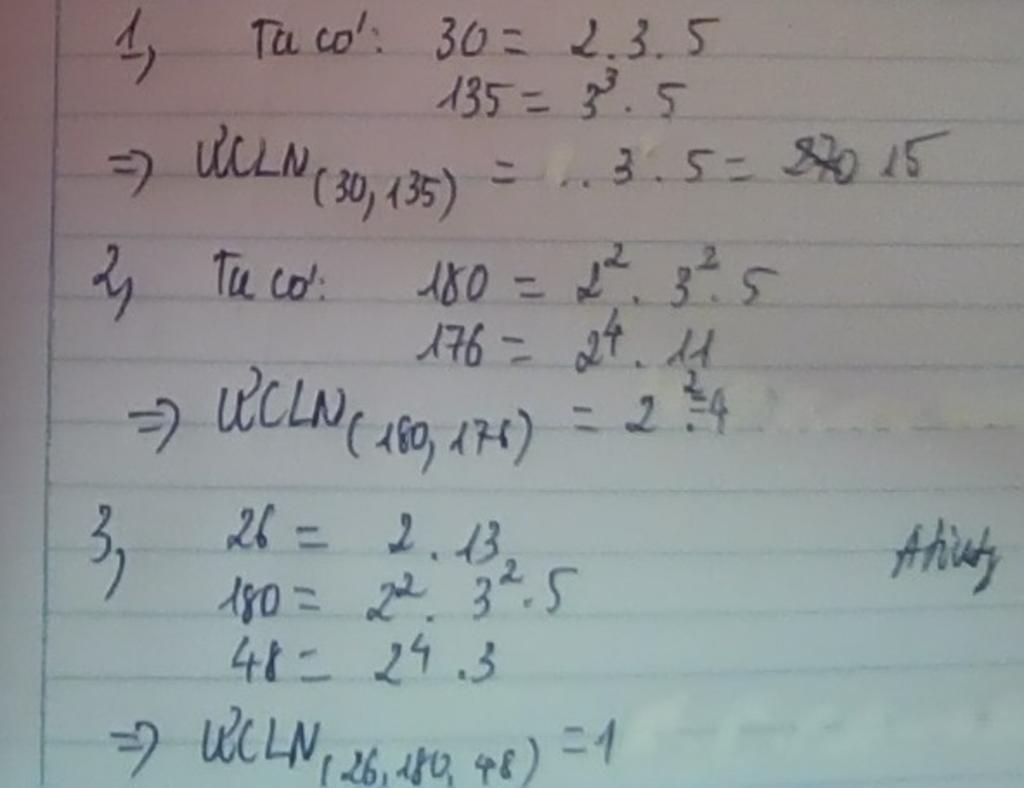 1, Ta có: 30 = 2.3.5
135 = 3³.5
=> ƯCLN(30,135) = ..3.5 = 15
2, Ta có: 180 = 2².3².5
176 = 2⁴.11
=> ƯCLN(180,176) = 2² = 4
3, 26 = 2.13
180 = 2².3².5
48 = 2⁴.3
=> ƯCLN(26,180,48) = 1